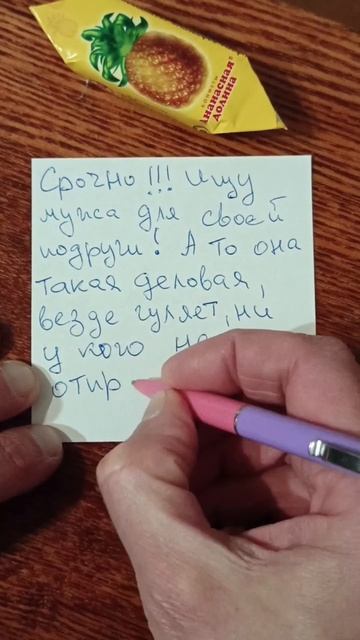 Ананасная
долина
Срочно !!! Ищу
мужа для своей
подруги! А то она
такая деловая,
везде гуляет, ни
у кого не
отпр